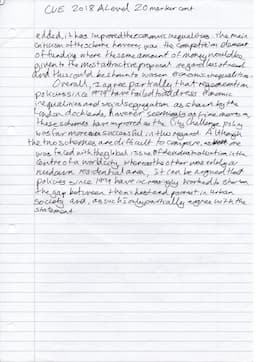 CUE 2018 A Level 20 marker cont
edded, it has improved the economic inequalities. The main
criticism of the scheme however was the competition element
of funding where the same amount of money would be
given to the most attractive proposal regardless of need
and thus could be shown to worsen economic inequalities.
Overall, I agree partially that regeneration
policies since 1979 have failed to address economic
inequalities and social segregation as shown by the
London docklands, however seemingly as time moves on,
these schemes have improved as the City Challenge policy
was far more successful in this regard. Although
the two schemes are difficult to compare, as one
was faced with the global issue of deindustrialisation in the
centre of a world city whereas the other was only a
rundown residential area, it can be argued that
policies since 1979 have increasingly worked to shorten
the gap between the richest and poorest in urban
society and, as such I only partially agree with the
statement.